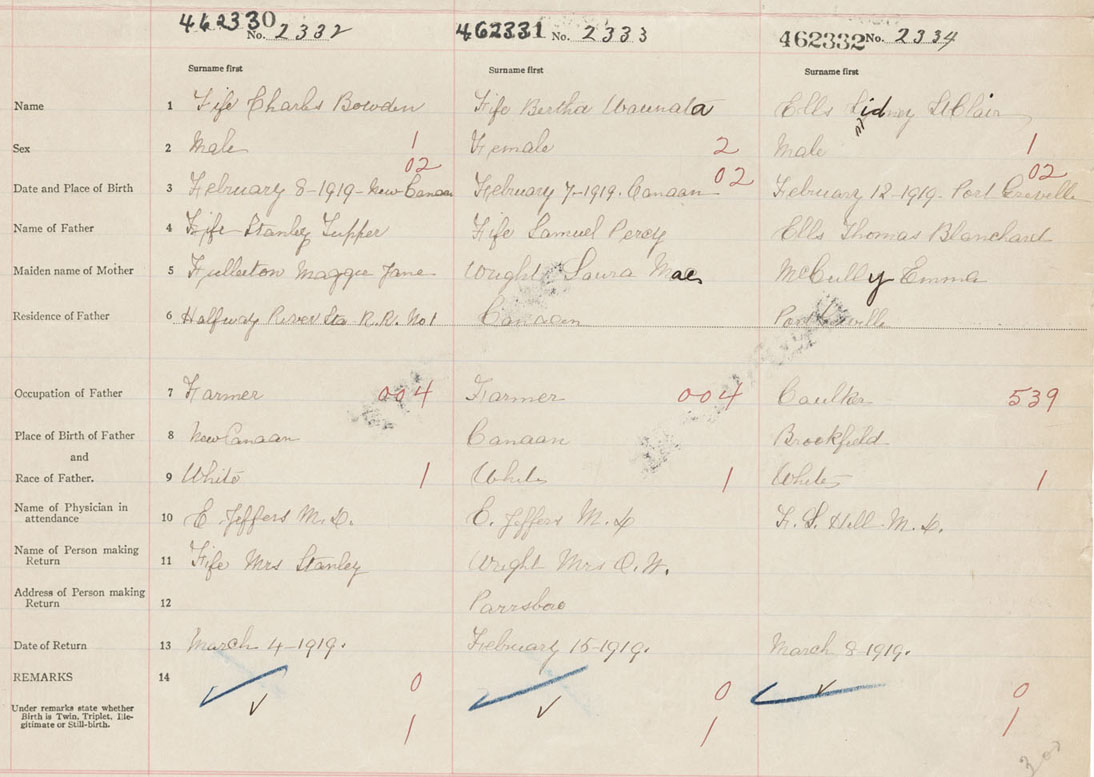 462330 No. 2332 462331 No. 2333 462332 No. 2334
Surname first Surname first Surname first
Name 1 Fife Charles Bowden Fife Bertha Ells Sidney StClair
Sex 2 Male 1 Female 2 Male 1
02 02 02
Date and Place of Birth 3 February 8-1919- New Canaan February 7-1919. Canaan February 12-1919. Port Greville
Name of Father 4 Fife Stanley Tupper Fife Samuel Percy Ells Thomas Blanchard
Maiden name of Mother 5 Fullerton Maggie Jane Wright Laura Mae McCully Emma
Residence of Father 6 Halfway River Sta R.R. No 1 Canaan Port Greville
Occupation of Father 7 Farmer 004 Farmer 004 Caulker 539
Place of Birth of Father 8 New Canaan Canaan Brookfield
and
Race of Father. 9 White 1 White 1 White 1
Name of Physician in
attendance 10 C. Jeffers M.D. C. Jeffers M.D F. S. Hill M.D.
Name of Person making
Return 11 Fife Mrs Stanley Wright Mrs O.W.
Address of Person making
Return 12 Parrsboro
Date of Return 13 March 4-1919. February 15-1919. March 8-1919.
REMARKS 14 0 0 0
Under remarks state whether
Birth is Twin, Triplet, Ille-
gitimate or Still-birth. 1 1 1